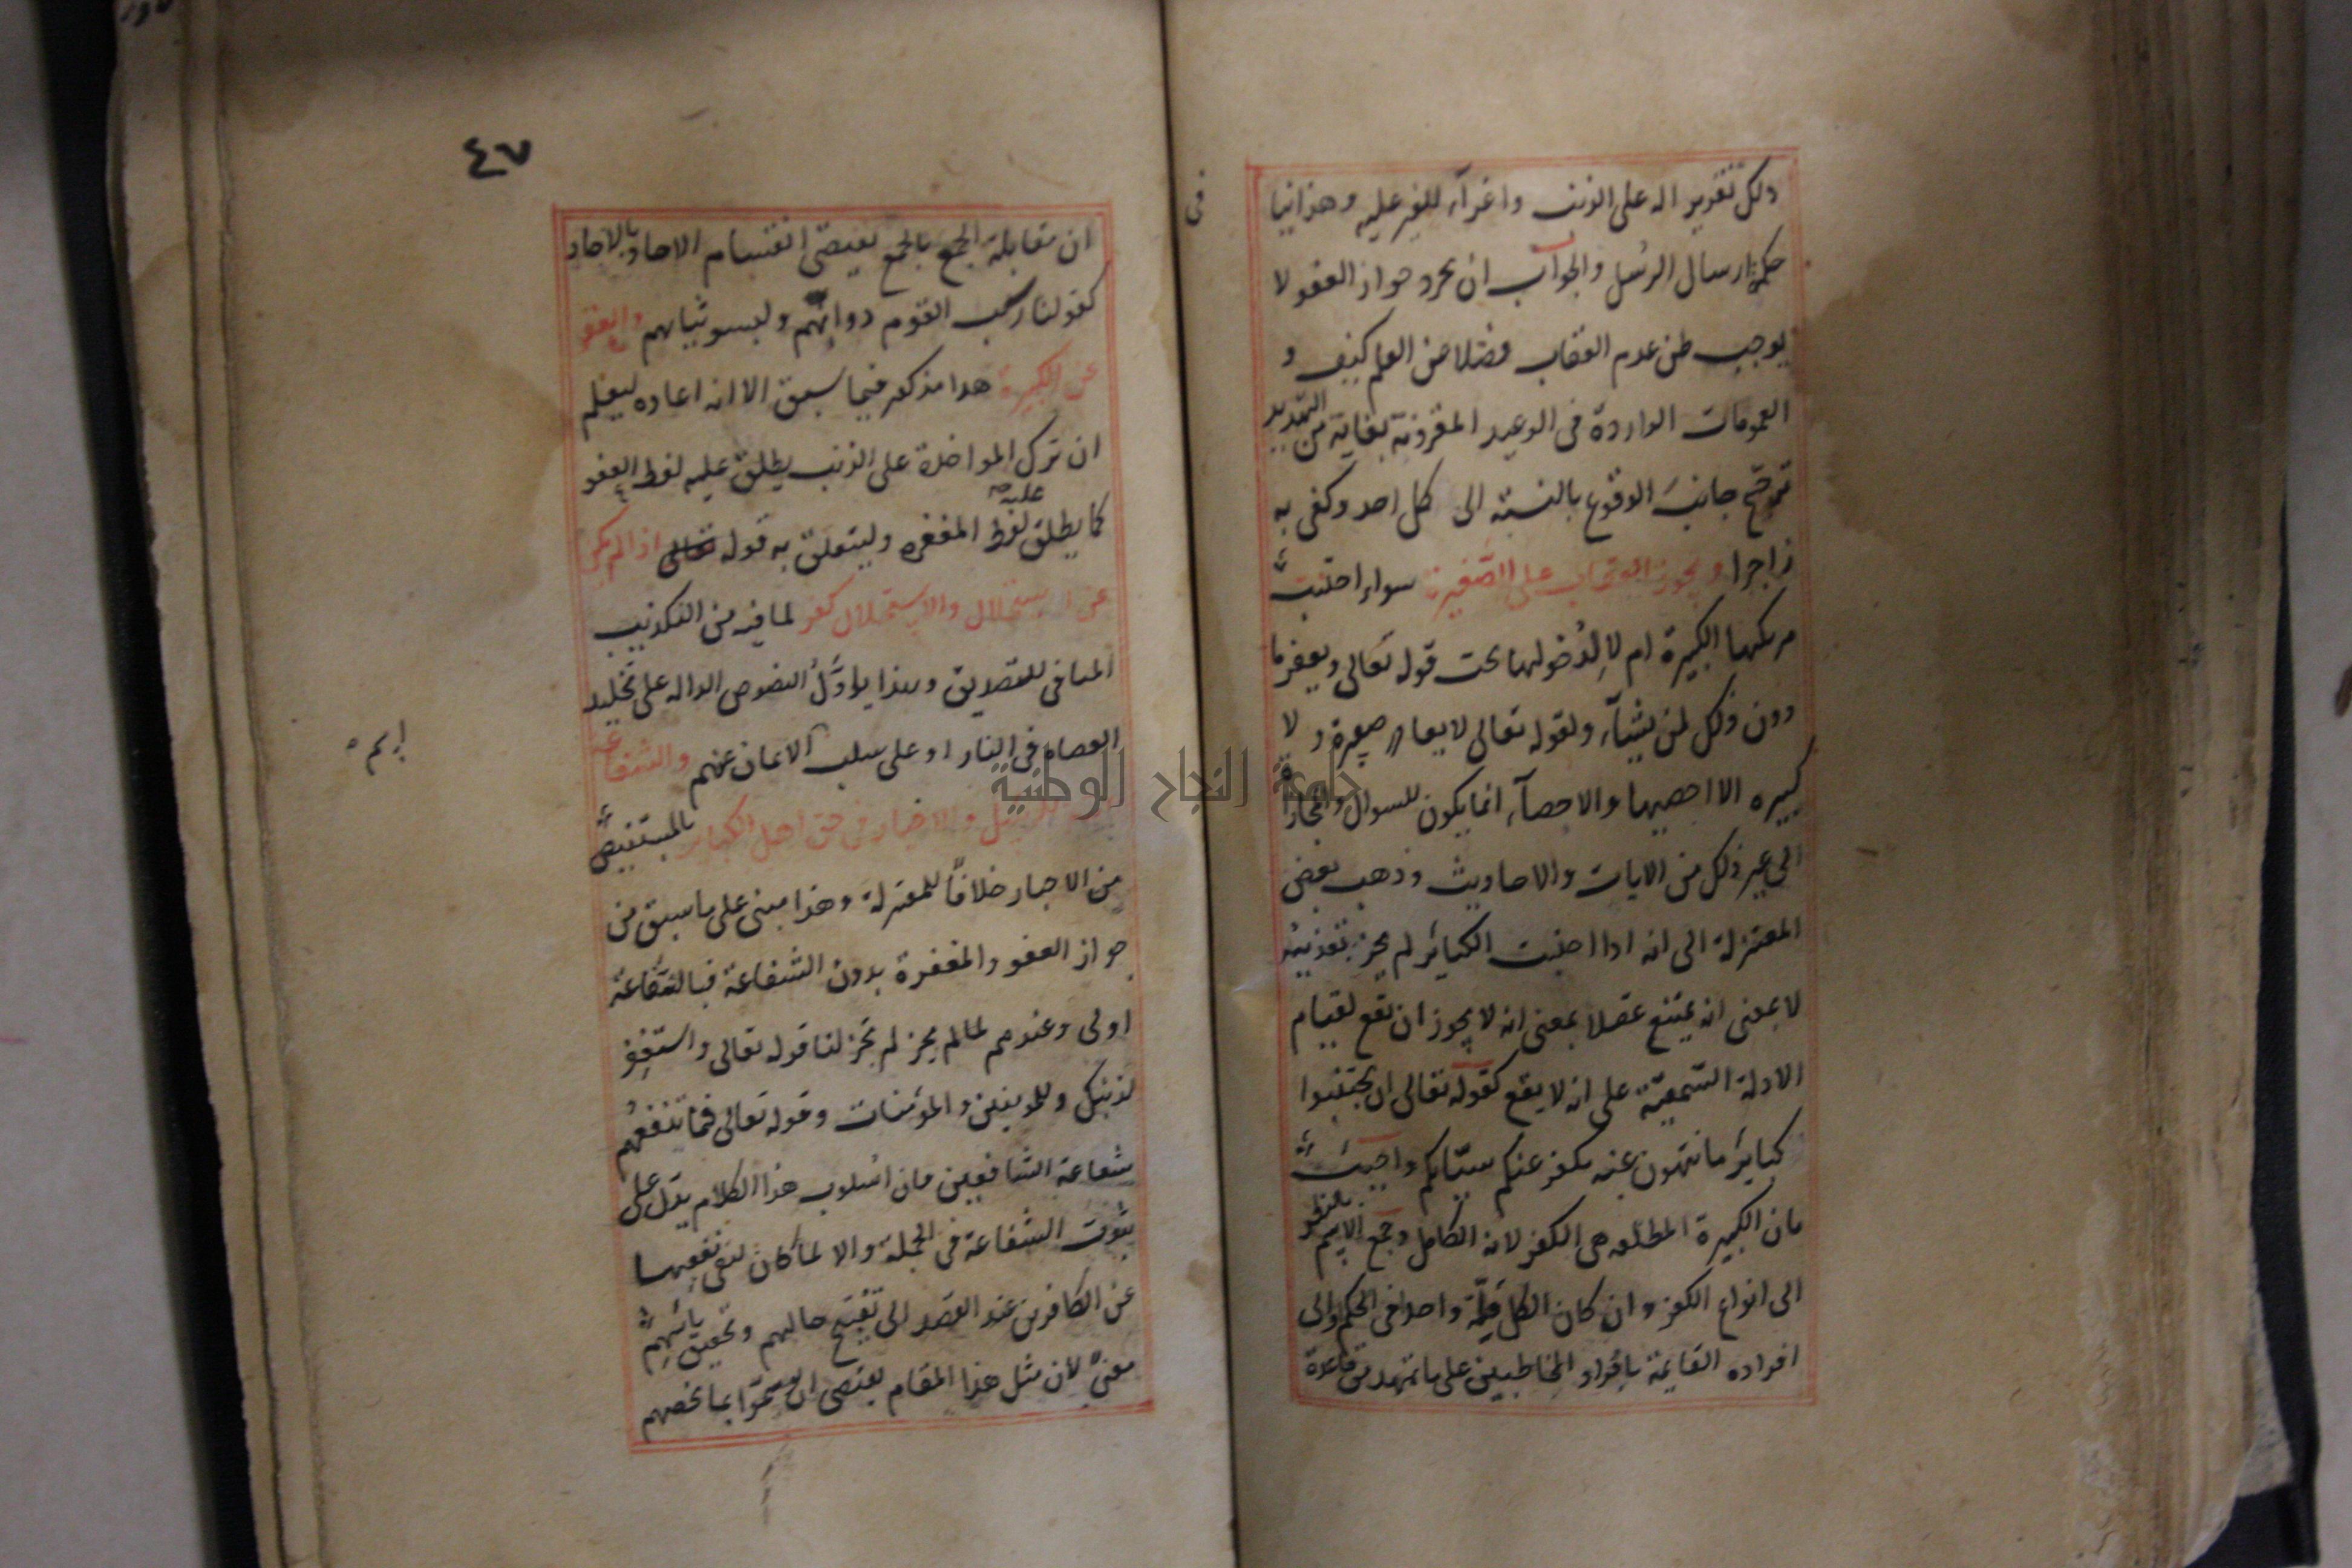 ذلك تقريرا له على الذنب واغراء للغير عليه وهذا ينافي
حكمة ارسال الرسل والجواب ان مجرد جواز العفو لا
يوجب ظن عدم العقاب فضلا عن العلم كيف و
العمومات الواردة فى الوعيد المقرونة بغاية من التهديد
ترجح جانب الوقوع بالنسبة الى كل احد وكفى به
زاجرا ويجوز العقاب على الصغيرة سواء اجتنب
مرتكبها الكبيرة ام لا لدخولها تحت قوله تعالى ويغفر ما
دون ذلك لمن يشاء ولقوله تعالى لا يغادر صغيرة ولا
كبيره الا احصيها والاحصاء انما يكون للسوال والمجازاة
الى غير ذلك من الايات والاحاديث وذهب بعض
المعتزلة الى انه اذا اجتنب الكبائر لم يجز تعذيبه
لا بمعنى انه يمتنع عقلا بمعنى انه لا يجوز ان يقع لقيام
الادلة السمعية على انه لا يقع كقوله تعالى ان تجتنبوا
كبائر ما تنهون عنه نكفر عنكم سيئاتكم واجيب
بان الكبيرة المطلقه هى الكفر لانه الكامل وجمع الاسم بالنظر
الى انواع الكفر وان كان الكل ملة واحدا فى الحكم والى
افراده القايمة بافراد المخاطبين على ما تمهد من قاعدة
فى
٤٧
ان مقابلة الجمع بالجمع يقتضى انقسام الاحاد بالاحاد
كقولنا ركب القوم دوابهم ولبسو ثيابهم والعفو
عن الكبيرة هذا مذكور فيما سبق الا انه اعاده ليعلم
ان ترك المواخذة على الذنب يطلق عليه لفظ العفو
كما يطلق عليه لفظ المغفره وليتعلق به قوله تعالى اذا لم يكن
عن استحلال والاستحلال كفر لما فيه من التكذيب
المنافى للتصديق وبهذا ياوّل النصوص الداله على تخليد
العصاة فى النار او على سلب الايمان عنهم والشفاعة
للرسل والاخيار فى حق اهل الكبائر بالمستفيض
من الاخبار خلافًا للمعتزلة وهذا مبنى على ما سبق من
جواز العفو والمغفرة بدون الشفاعة فبالشفاعة
اولى وعندهم لما لم يجز لم تجز لنا قوله تعالى واستغفر
لذنبك وللمومنين والمؤمنات وقوله تعالى فما تنفعهم
شفاعة الشافعين فان اسلوب هذا الكلام يدل على
ثبوت الشفاعة فى الجملة والا لما كان لنفى نفعها
عن الكافرين عند القصد الى تقبيح حالهم وتحقيق باسهم
معنى لان مثل هذا المقام يقتضى ان يوسموا بما يخصهم
جامعة النجاح الوطنية